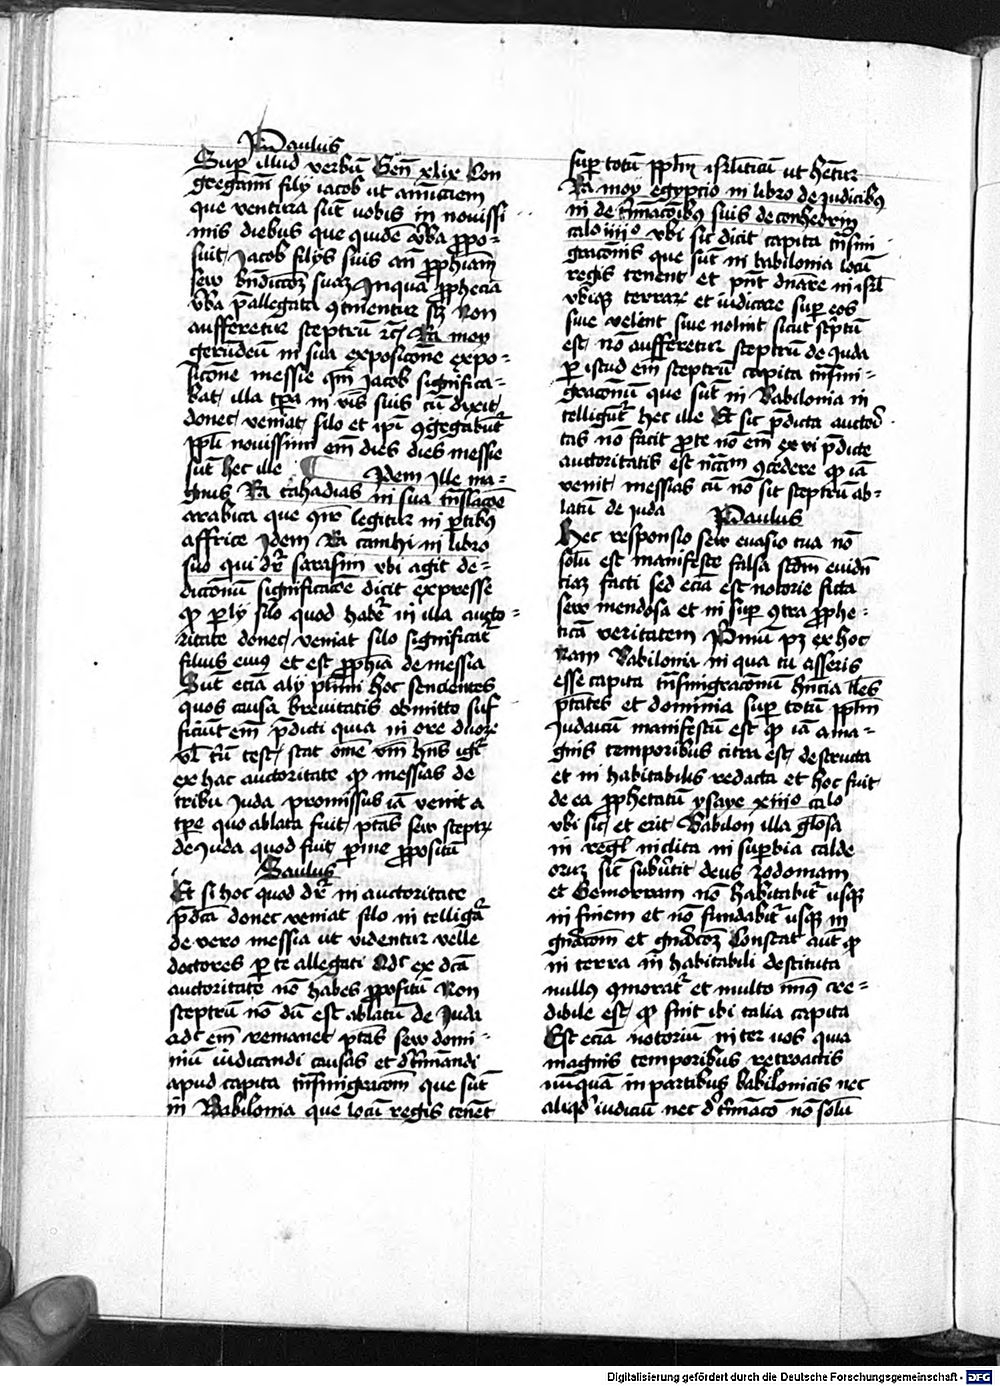 Paulus
Sup illud verbū Gen̄ xlix Con
gregamī filij iacob ut annūciem
que ventura sūt uobis in nouissi
mis diebus que quidē v̄ba p̄po-
suit Jacob filijs suis an̄ p̄phiam
sew bn̄diccōꝫ suaꝫ Inqua p̄phecia
v̄ba p̄allegata ꝯtinentur sꝫ Non
aufferetur sceptrū ꝛc̄ Ra moy
gerūdeū in sua exposicōne expo-
sicōne messie qm̄ Jacob significa-
bat illa tp̄a in v̄bis suis cū dixit
donec veniat silo et ip̄i ꝯgregabūt̄
ppl̄i nouissimi em̄ dies dies messie
sūt hec ille Idem ille ma-
gnus Ra cahadias in sua tn̄slacōe
arabica que q̄ꝛo legitur in ꝑtibꝯ
affrice Idem Ra camhi in libro
suo qui dr̄ sarasim vbi agit de-
diccionū significacōe dicit expresse
ꝙ ꝑ ly silo quod habet̄ in illa aucto-
ritate donec veniat silo significat̄
filius eius et est p̄phīa de messia
Sūt eciā alij plimi hoc sencientes
quos causa breuitatis obmitto suf
ficiūt em̄ p̄dicti quia in ore duoꝝ
vl̄ triū test stat om̄e v̄m hn̄s igit̄
ex hac auctoritate ꝙ messias de
tribu Juda promissus iā venit a
tp̄e quo ablata fuit ptās sew sceptꝝ
de Juda quod fuit ꝑ me p̄positū
Saulus
Et si hoc quod dr̄ in auctoritate
p̄dc̄a donec veniat silo in telligat̄
de vero messia ut videntur velle
doctores ꝑ te allegati Adc̄ ex dc̄a
auctoritate nō habes p̄positū Non
sceptrū nō dū est ablatū de Juda
adc̄ em̄ remanet ptās sew domi-
niū iudicandi causas et dt̄minandi
apud capita tn̄smigracōm̄ que sūt
in Babilonia que locū regis tenēt
sup totū pplm̄ isrliticū ut het̄ur
Ra moy egypcio in libro de Judicibꝯ
in de t̄minacōibꝯ suis de conhedrim
calo iiijo vbi sic dicit capita tn̄smi
gracōnis que sūt in babilonia locū
regis tenent et pn̄t dn̄are in isrl̄
vbiqꝫ terrarꝫ et iudicare sup eos
siue velent siue nolint sicut sc̄ptū
est nō aufferetur sceptrū de Juda
ꝑ istud em̄ sceptrū capita tn̄smi-
gracōnū que sūt in Babilonia in
telligūt̄ hec ille Et sic p̄dicta auctoı̄
tas nō facit pro te nō em̄ ex vi p̄dicte
auctoritatis est nc̄c̄m ꝯcedere ꝙ iā
venit messias cū nō sit sceptrū ab-
latū de iuda
Paulus
Hec responsio sew euasio tua nō
solū est manifeste falsa scd̄m euidn̄
tiaꝫ facti sed eciā est notorie ficta
sew mendosa et in sup ꝯtra p̄phe-
ticā veritatem Primū pꝫ ex hoc
Nam Babilonia in qua tu asseris
esse capita tn̄smigracōnū hn̄cia tles
ptātes et dominia sup totū pplm̄
Judaicū manifestū est ꝙ iā a ma-
gnis temporibus citra est destructa
et in habitabilis redacta et hoc fuit
de ea p̄phetatū ysaye xiijo calo
vbi sic et erit Babilon illa gl̄osa
in regl̄ inclita in supbia calde
oruꝫ sic subūtit deus zodomam
et Gemorram nō habitabit̄ usqꝫ
in finem et nō fundabit̄ usqꝫ in
gn̄acōm̄ et gn̄acōꝫ Constat aut̄ ꝙ
in terra in habitabili destituta
nullꝯ ꝯmorat̄ et multo minꝯ cre-
dibile est ꝙ sint ibi talia capita
Est eciā notoriū in ter uos qua
magnis temporibus retroactis
nūquā in partibus babilonicis nec
aliqd̄ iudiciū nec dt̄minacō nō solū
Digitalisierung gefördert durch die Deutsche Forschungsgemeinschaft - DFG